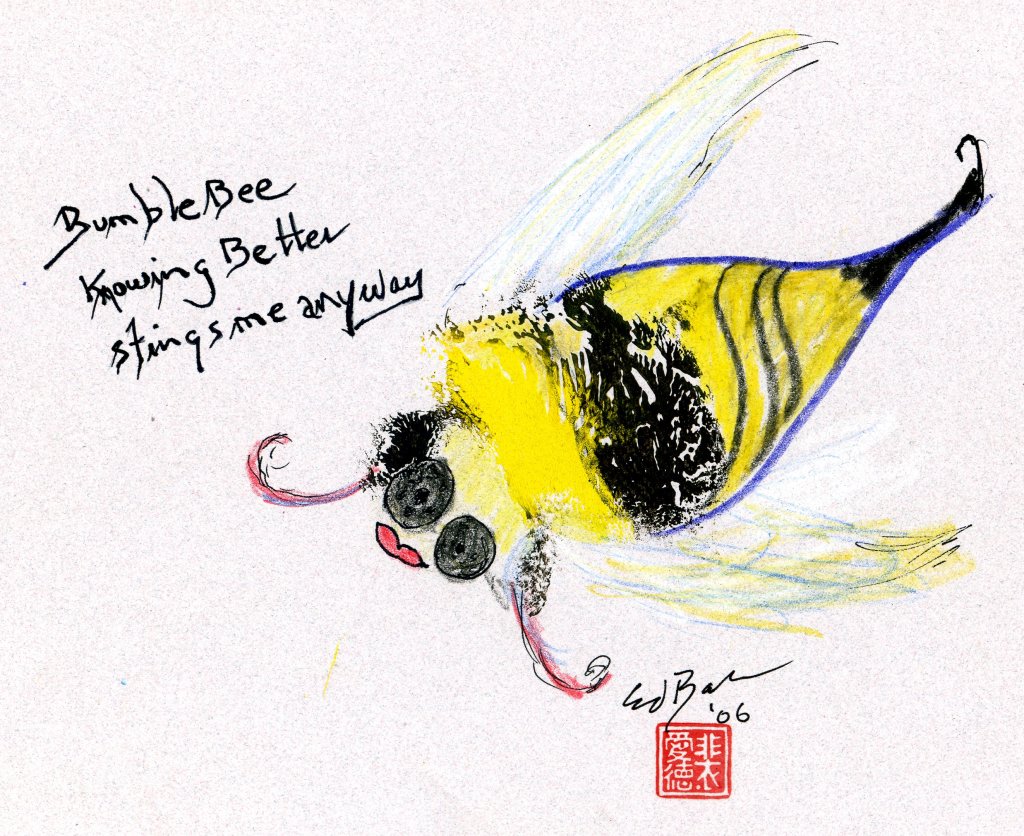 BumbleBee
Knowing Better
stings me anyway
Ed Baker
'06
裴
愛德